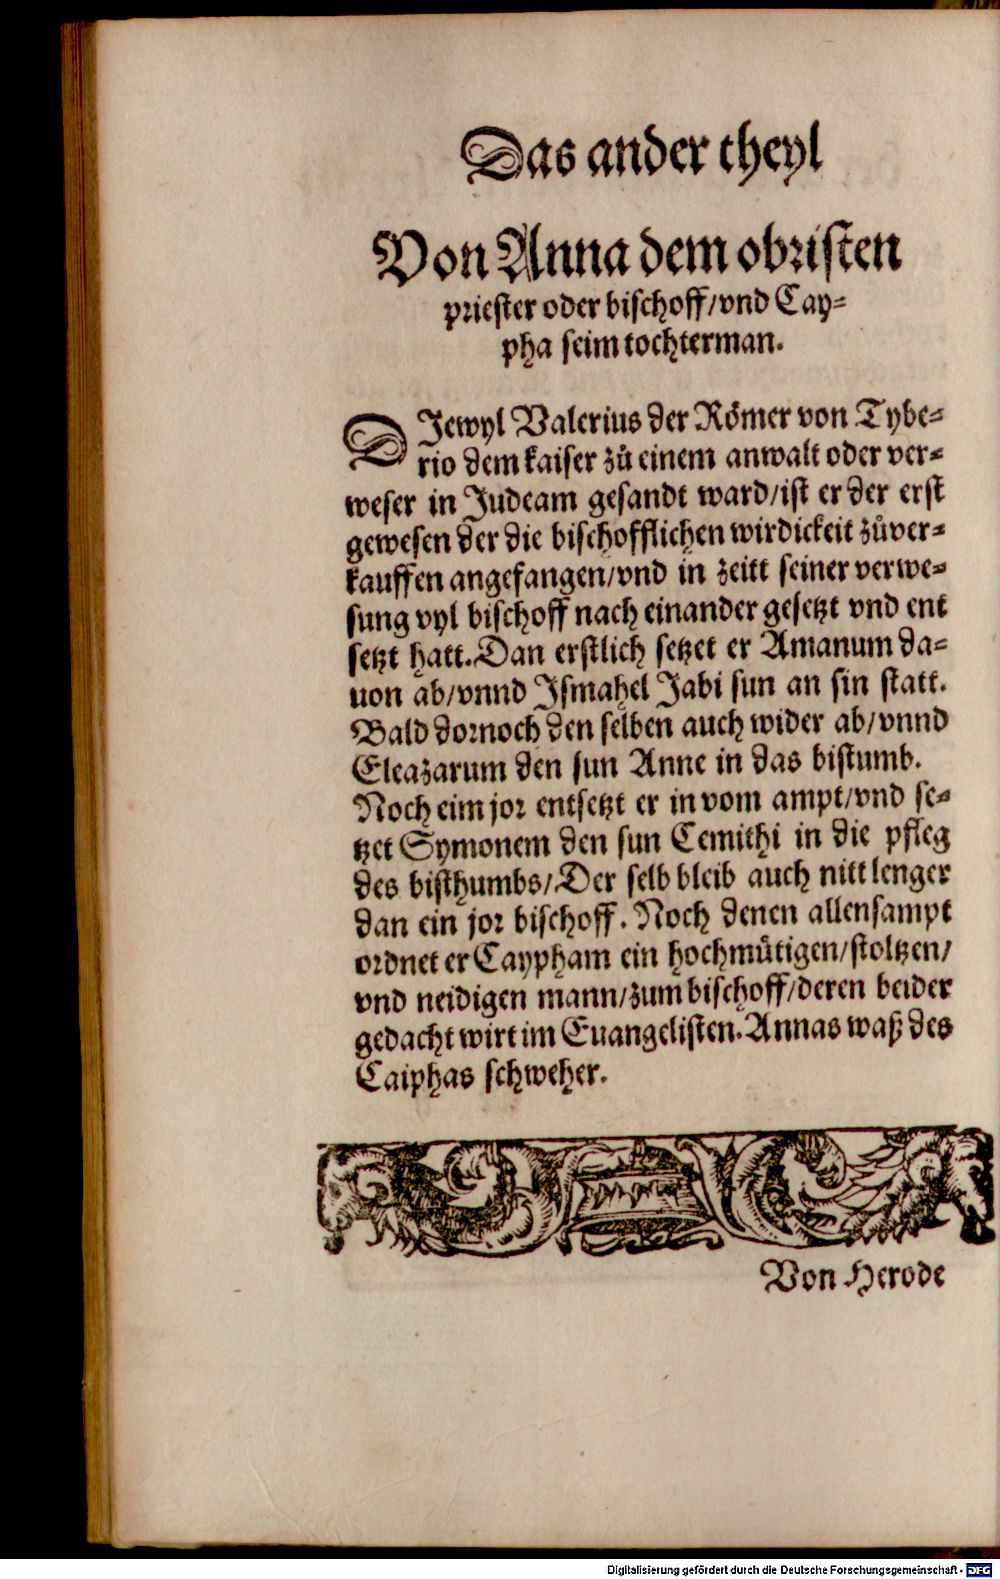 Das ander theyl
Von Anna dem obristen
priester oder bischoff/vnd Cay⸗
pha seim tochterman.
DJewyl Valerius der Römer von Tybe⸗
rio dem kaiser zů einem anwalt oder ver⸗
weser in Judeam gesandt ward/ist er der erst
gewesen der die bischofflichen wirdickeit zůver⸗
kauffen angefangen/vnd in zeitt seiner verwe⸗
sung vyl bischoff nach einander gesetzt vnd ent
setzt hatt. Dan erstlich setzet er Amanum da⸗
uon ab/vnnd Jsmahel Jabi sun an sin statt.
Bald dornoch den selben auch wider ab/vnnd
Eleazarum den sun Anne in das bistumb.
Noch eim jor entsetzt er in vom ampt/vnd se⸗
tzet Symonem den sun Cemithi in die pfleg
des bisthumbs/Der selb bleib auch nitt lenger
dan ein jor bischoff. Noch denen allensampt
ordnet er Caypham ein hochmütigen/stoltzen/
vnd neidigen mann/zum bischoff/deren beider
gedacht wirt im Euangelisten. Annas waß des
Caiphas schweher.
Von Herode
Digitalisierung gefördert durch die Deutsche Forschungsgemeinschaft - DFG